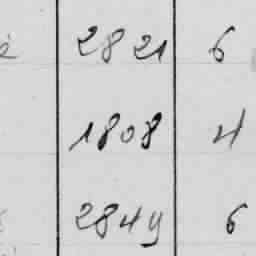 2821 6
1808 4
2849 6